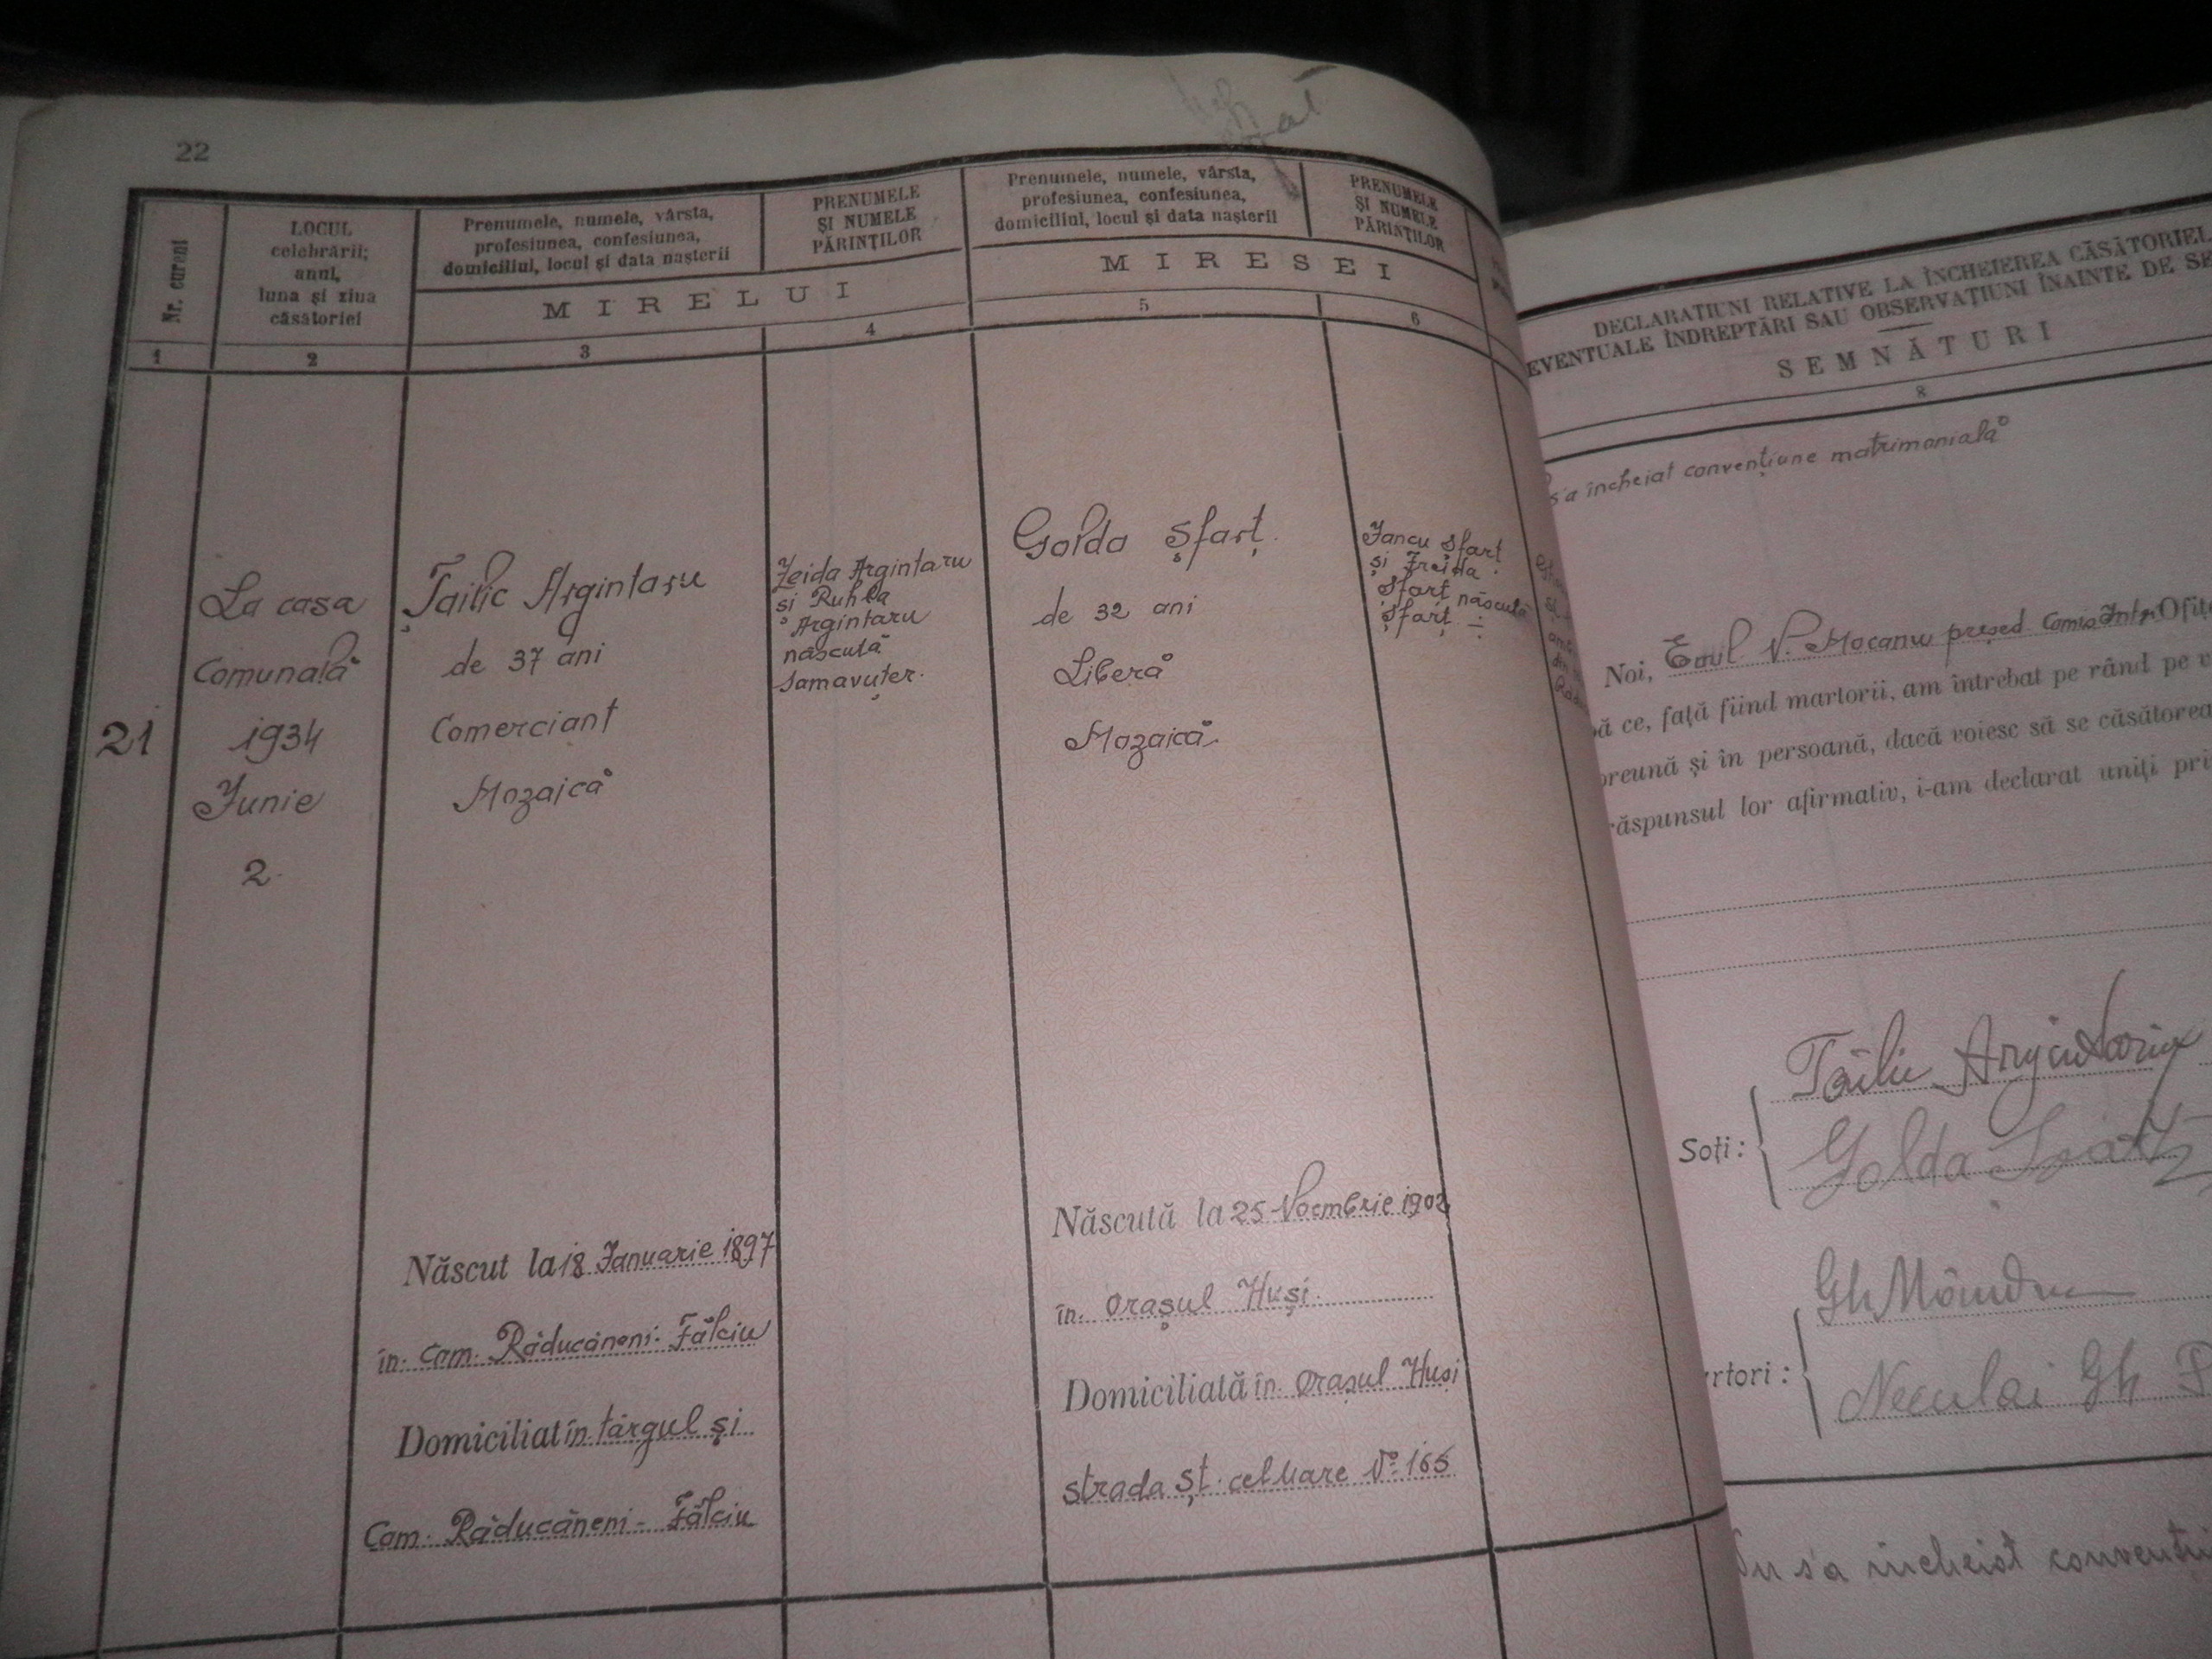 22
Nr. curent
LOCUL
celebrării;
anul,
luna și ziua
căsătoriei
Prenumele, numele, vârsta,
profesiunea, confesiunea,
domiciliul, locul și data nașterii
PRENUMELE
ȘI NUMELE
PĂRINȚILOR
MIRELUI
Prenumele, numele, vârsta,
profesiunea, confesiunea,
domiciliul, locul și data nașterii
PRENUMELE
ȘI NUMELE
PĂRINȚILOR
MIRESEI
1
2
3
4
5
6
21
La casa
Comunală
1934
Junie
2
Țailic Argintaru
de 37 ani
Comerciant
Mozaică
Născut la 18 Januarie 1897
în. Com. Răducăneni. Fălciu
Domiciliat în târgul și
Com. Răducăneni - Fălciu
Zeida Argintaru
și Ruhla
Argintaru
născută
Golda Șfarț.
de 32 ani
Liberă
Mozaică
Născută la 25 Noembrie 1902
în. Orașul Huși.
Domiciliată în Orașul Huși
strada Șt. cel Mare No. 165
Jancu Șfarț
și Freida
Șfarț născută
Șfarț
DECLARAȚIUNI RELATIVE LA ÎNCHEIEREA CĂSĂTORIEI,
EVENTUALE ÎNDREPTĂRI SAU OBSERVAȚIUNI ÎNAINTE DE SE
SEMNĂTURI
8
s'a încheiat convențiune matrimonială
Noi, Emil V. Mocanu președ Ofiț
ă ce, față fiind martorii, am întrebat pe rând pe v
reună și în persoană, dacă voiesc să se căsătorea
răspunsul lor afirmativ, i-am declarat uniți pri
Soți:
Golda
rtori:
Neculai Gh
Nu s'a încheiat convenți